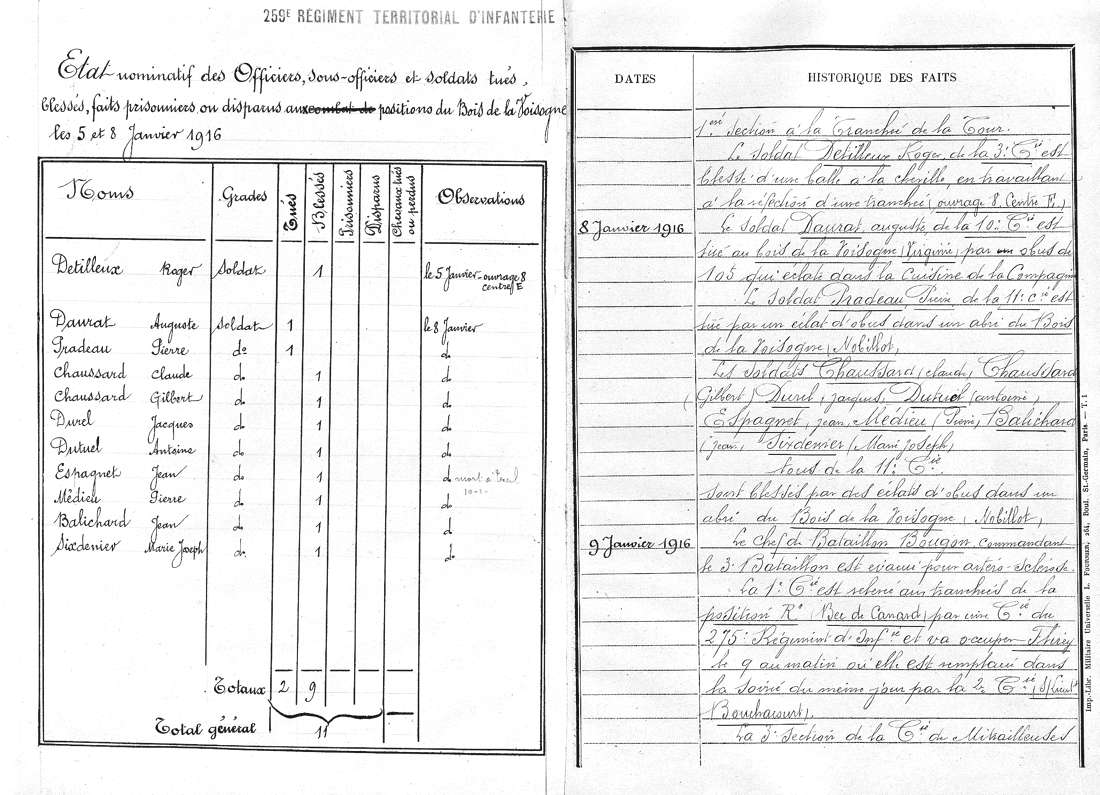 259E RÉGIMENT TERRITORIAL D'INFANTERIE
Etat nominatif des Officiers, sous-officiers et soldats tués,
blessés, faits prisonniers ou disparus aux combat de positions du Bois de la Voisogne
les 5 et 8 Janvier 1916
Noms Grades Tués Blessés Prisonniers Disparus Chevaux tués ou perdus Observations
Detilleux Roger Soldat 1 le 5 Janvier - ouvrage 8
centre E
Daurat Auguste Soldat 1 le 8 Janvier
Pradeau Pierre do 1 d
Chaussard Claude d. 1 d
Chaussard Gilbert d. 1 d
Durel Jacques d. 1 d
Dutuel Antoine d. 1 d
Espagnet Jean d. 1 d mort à
10-1-
Médieu Pierre d. 1 d
Balichard Jean d. 1 d
Sixdenier Marie Joseph d. 1 d.
Totaux 2 9
Total général 11
DATES HISTORIQUE DES FAITS
1ère Section à la Tranchée de la Tour.
Le soldat Detilleux Roger, de la 3e Cie est
blessé d'une balle à la cheville, en travaillant
à la réfection d'une tranchée (ouvrage 8. Centre E.)
8 Janvier 1916 Le soldat Daurat, auguste de la 10e Cie est
tué au bois de la Voisogne (Virginie) par un obus de
105 qui éclate dans la Cuisine de la Compagnie
Le soldat Pradeau Pierre de la 11e Cie est
tué par un éclat d'obus dans un abri du Bois
de la Voisogne (Nobillot)
Les soldats Chaussard (claude) Chaussard
(Gilbert) Durel (jacques) Dutuel (antoine)
Espagnet (jean) Médieu (Pierre) Balichard
(jean) Sixdenier (Marie Joseph)
tous de la 11e Cie
sont blessés par des éclats d'obus dans un
abri du Bois de la Voisogne (Nobillot)
9 Janvier 1916 Le Chef de Bataillon Bougon, commandant
le 3e Bataillon est évacué pour artério-sclérose.
La 1e Cie est relevée aux tranchées de la
position R' (Bec de Canard) par une Cie du
275e Régiment d'Infie et va occuper Thirey
le 9 au matin où elle est remplacée dans
la soirée du même jour par la 2e Cie (S/Lieut
Bouchacourt).
La 3e Section de la Cie de Mitrailleuses
Imp.-Libr. Militaire Universelle L. Fournier, 264, Boul. St-Germain, Paris. — T. 1